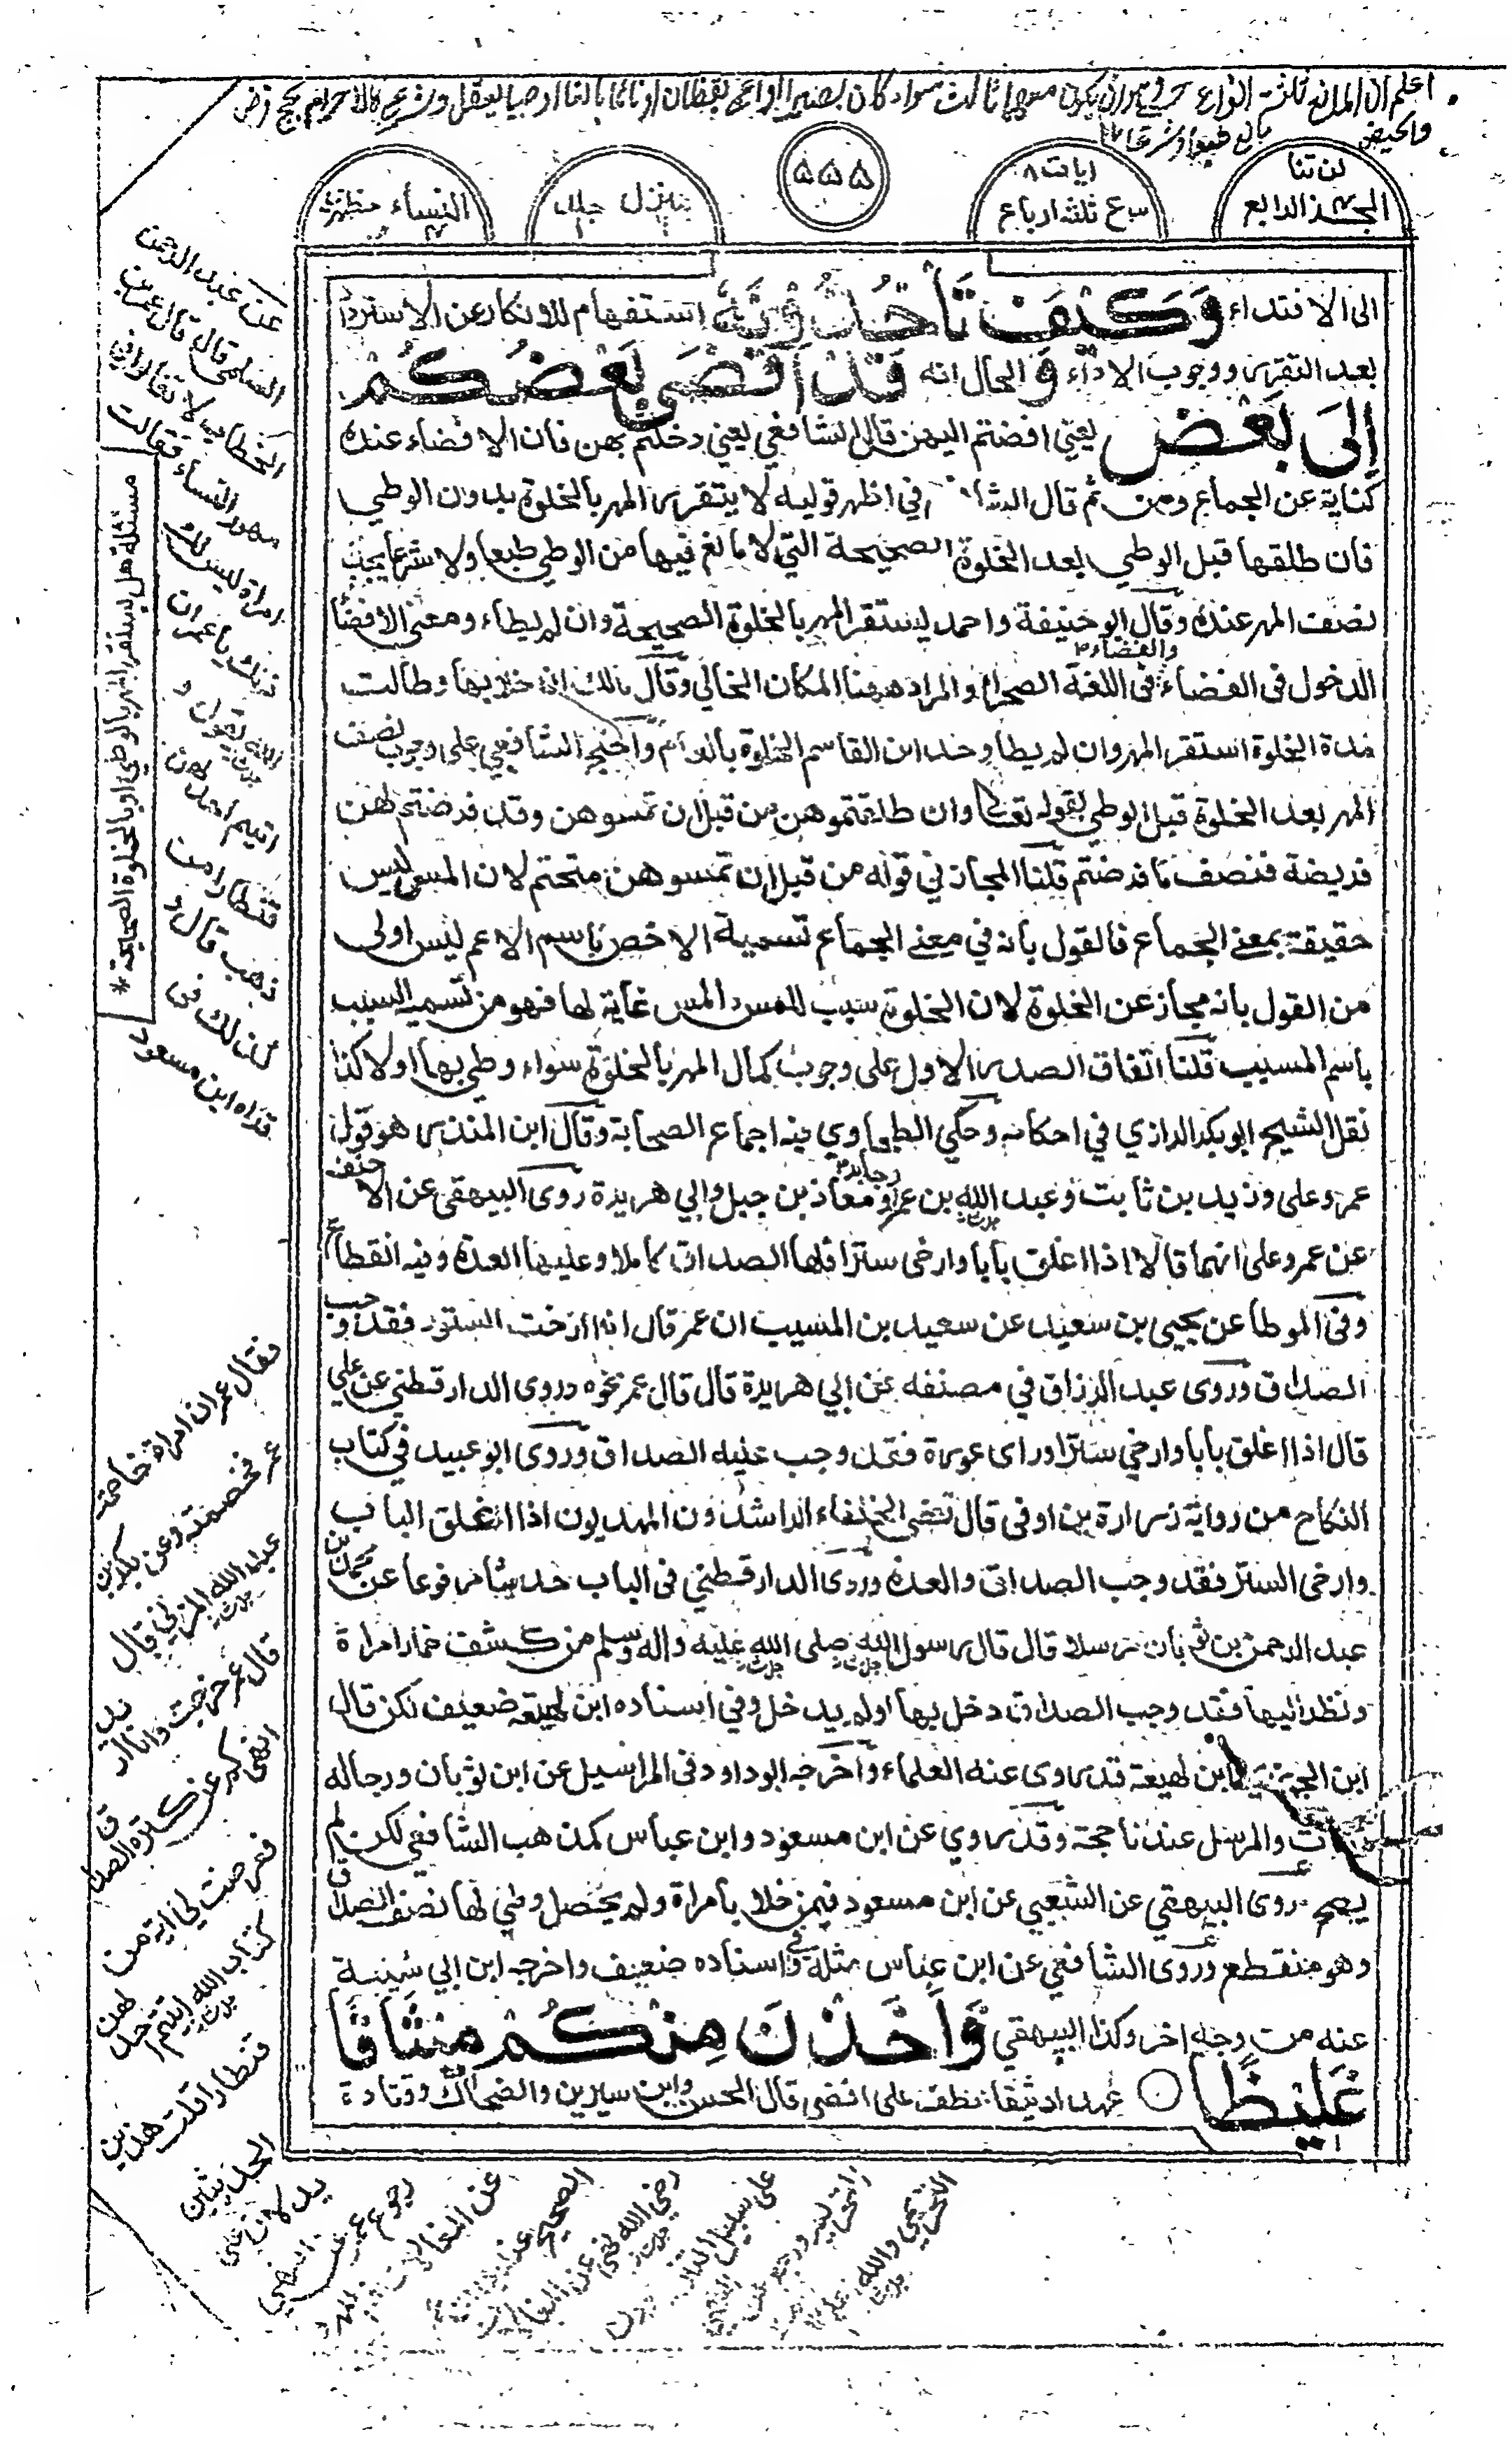 اعلم ان المانع ثلثة انواع حسي وهو ان يكون معهما ثالث سواء كان بصيرا او اعمى يقظان او نائما بالغا او صبيا يعقل وشرعي كالاحرام بحج فرض
والحيض مانع طبعا وشرعا ١٢
لن تنا
الجزء الرابع
اياتها ٨
ع ثلثة ارباع
۵۵۵
منزل
النساء مظهرى
الى الافتداء وَكَيْفَ تَأْخُذُوْنَهٗ استفهام للانكار عن الاسترداد
بعد التقرر ووجوب الاداء وَ الحال انه قَدْ اَفْضٰى بَعْضُكُمْ
اِلٰى بَعْضٍ يعني افضتم اليهن قال الشافعي يعني دخلتم بهن فان الافضاء عنده
كناية عن الجماع ومن ثم قال الشا في اظهر قوليه لا يتقرر المهر بالخلوة بدون الوطي
فان طلقها قبل الوطي بعد الخلوة الصحيحة التي لا مانع فيها من الوطي طبعا ولا شرعا يجب
نصف المهر عنده وقال ابو حنيفة واحمد يستقر المهر بالخلوة الصحيحة وان لم يطاء ومعنى الافضا
الدخول في الفضاء والفضاء في اللغة الصحراء والمراد ههنا المكان الخالي وقال مالك اذا خلا بها وطالت
مدة الخلوة استقر المهر وان لم يطا وحد ابن القاسم الخلوة بالعام واحتج الشافعي على وجوب نصف
المهر بعد الخلوة قبل الوطي بقوله تعالى وان طلقتموهن من قبل ان تمسوهن وقد فرضتم لهن
فريضة فنصف ما فرضتم قلنا المجاز في قوله من قبل ان تمسوهن متحتم لان المس ليس
حقيقة بمعنى الجماع فالقول بانه في معنى الجماع تسمية الاخص باسم الاعم ليس اولى
من القول بانه مجاز عن الخلوة لان الخلوة سبب للمس والمس غاية لها فهو من تسمية السبب
باسم المسبب قلنا اتفاق الصدر الاول على وجوب كمال المهر بالخلوة سواء وطي بها اولا كذا
نقل الشيخ ابو بكر الرازي في احكامه وحكى الطحاوي فيه اجماع الصحابة وقال ابن المنذر هو قول
عمر وعلى وزيد بن ثابت وعبد الله بن عمر وجابر ومعاذ بن جبل وابي هريرة روى البيهقي عن الاحنف
عن عمر وعلى انهما قالا اذا اغلق بابا وارخى سترا فلها الصداق كاملا وعليها العدة وفيه انقطاع
وفى الموطا عن يحيى بن سعيد عن سعيد بن المسيب ان عمر قال اذا ارخت الستور فقد وجب
الصداق وروى عبد الرزاق في مصنفه عن ابي هريرة قال قال عمر نحوه وروى الدار قطني عن علي
قال اذا اغلق بابا وارخي سترا وراى عورة فقد وجب عليه الصداق وروى ابو عبيد في كتاب
النكاح من رواية زرارة بن اوفى قال قضى الخلفاء الراشدون المهديون اذا اغلق الباب
وارخى الستر فقد وجب الصداق والعدة وروى الدار قطني في الباب حديثا مرفوعا عن محمد بن
عبد الرحمن بن ثوبان مرسلا قال قال رسول الله صلى الله عليه واله وسلم من كشف خمار امراة
ونظر اليها فقد وجب الصداق دخل بها اولم يدخل وفي اسناده ابن لهيعة ضعيف لكن قال
ابن الجوزي ابن لهيعة قد روى عنه العلماء واخرجه ابو داود في المراسيل عن ابن ثوبان ورجاله
ثقات والمرسل عندنا حجة وقد روي عن ابن مسعود وابن عباس كمذهب الشافعي لكن لم
يصح روى البيهقي عن الشعبي عن ابن مسعود فيمن خلا بامراة ولم يحصل وطي لها نصف الصداق
وهو منقطع وروى الشافعي عن ابن عباس مثله وفي اسناده ضعيف واخرجه ابن ابي شيبة
عنه من وجه اخر وكذا البيهقي وَّاَخَذْنَ مِنْكُمْ مِّيْثَاقًا
غَلِيْظًا ○ عهدا وثيقا عطف على افضى قال الحسن وابن سيرين والضحاك وقتادة
مسئلة هل يستقر المهر بالوطي او بالخلوة الصحيحة *
عن عبد الرحمن
السلمي قال قال عمر بن
الخطاب لا تغالوا في
مهور النساء فقالت
امراة ليس لك
ذلك يا عمر ان
الله يقول و
اتيتم احدهن
قنطارا من
ذهب قال و
كذلك في
قراءة ابن مسعود
فقال عمر ان امراة خاصمت
عمر فخصمته وعن بكر بن
عبد الله المزني قال
قال عمر خرجت وانا اريد
انهى كم عن كثرة الصداق
فعرضت لي اية من
كتاب الله اتيتم احدهن
قنطارا قلت هذين
الحديثين
يدلان على
رجوع عمر عن النهي
عن المغالات
الصحيح عن
رضي الله نهى عن المغالات
على سبيل
التحريمي والله